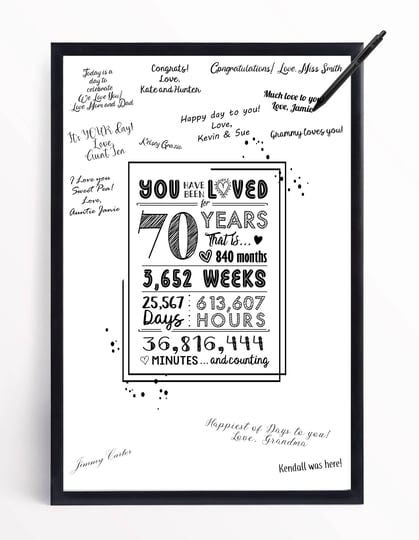 Today is a
day to
celebrate
We Love You!
Love Mom and Dad
Congrats!
Love,
Kate and Hunter
Congratulations! Love, Miss Smith
Much love to you
Love, Jamie
Happy day to you!
Love,
Kevin & Sue
Grammy loves you!
It's YOUR day!
Love
Aunt Jen
Kelsey Grazie
I Love you
Sweet Pea!
Love,
Auntie Janie
YOU HAVE BEEN LOVED
for
70 YEARS
That is...
840 months
3,652 WEEKS
25,567 Days
613,607 HOURS
36,816,444
MINUTES ...and counting
Happiest of Days to you!
Love, Grandma
Jimmy Carter
Kendall was here!